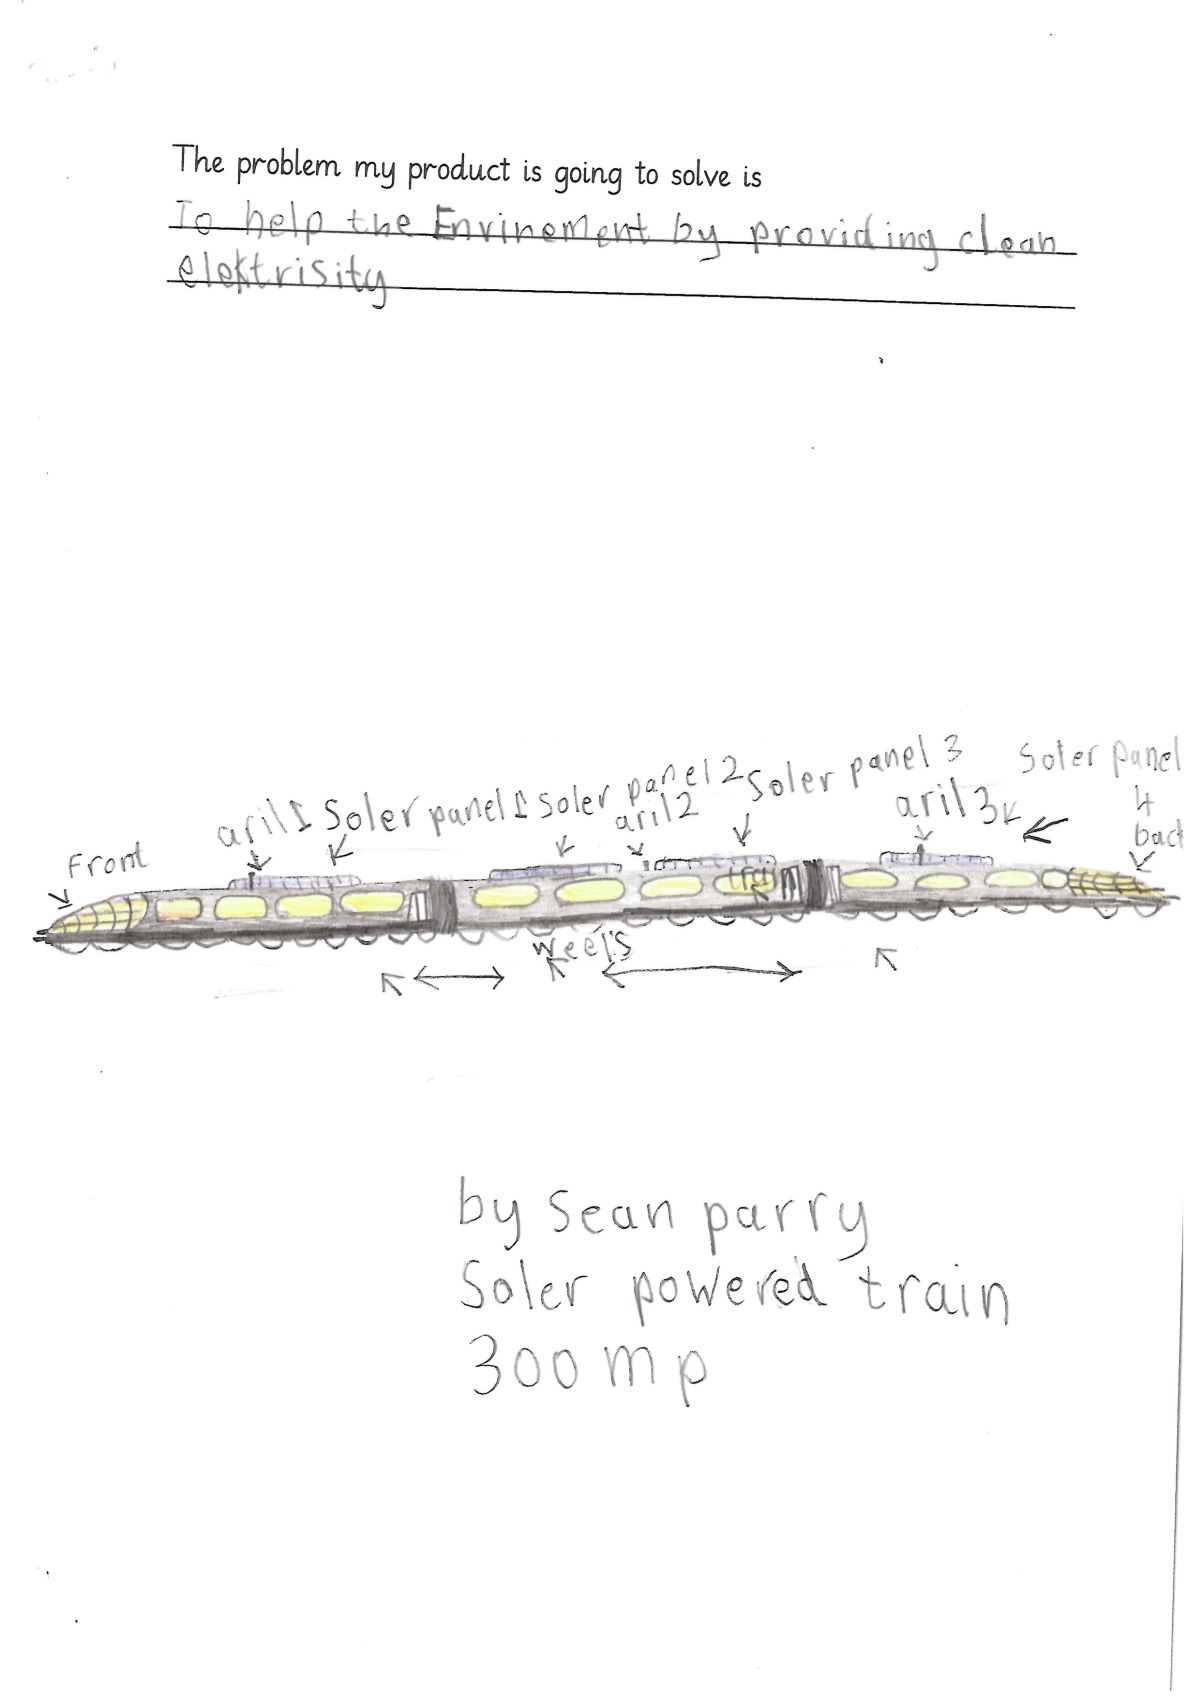 The problem my product is going to solve is
To help the Envinement by providing clean
elektrisity
Front
aril 1
Soler panel 1
Soler panel 2
aril 2
Soler panel 3
aril 3
Soler panel
4
back
weel's
by Sean parry
Soler powered train
300 mp